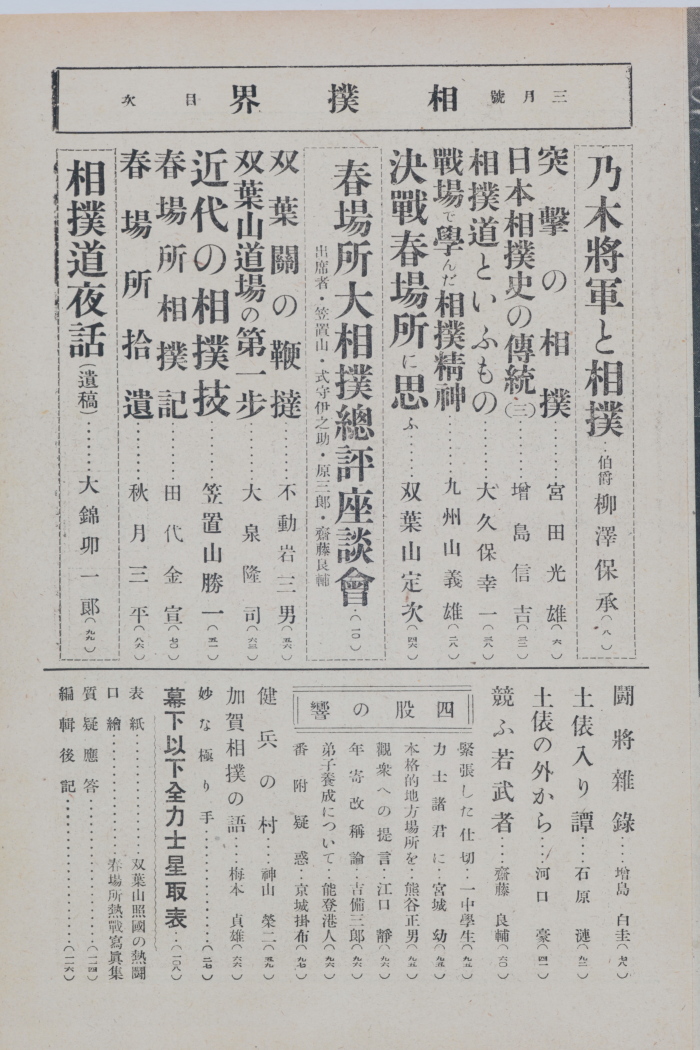 三月號 相撲界 目次
乃木將軍と相撲‥伯爵 柳澤保承(八)
突撃の相撲‥‥宮田光雄(六)
日本相撲史の傳統(三)‥‥增島信吉(三二)
相撲道といふもの‥‥大久保幸一(三八)
戰場で學んだ相撲精神‥‥九州山義雄(二八)
決戰春場所に思ふ‥‥双葉山定次(四六)
春場所大相撲總評座談會‥(一〇)
出席者・笠置山・式守伊之助・原三郎・齋藤良輔
双葉關の鞭撻‥‥不動岩三男(五六)
双葉山道場の第一步‥‥大泉隆司(六三)
近代の相撲技‥‥笠置山勝一(五一)
春場所相撲記‥‥田代金宣(七〇)
春場所拾遺‥‥秋月三平(八六)
相撲道夜話(遺稿)‥‥大錦卯一郎(九九)
鬪將雜錄‥增島白圭(七八)
土俵入り譚‥‥石原漣(九二)
土俵の外から‥‥河口豪(四一)
競ふ若武者‥‥齋藤良輔(六〇)
四股の響
緊張した仕切‥一中學生(九五)
力士諸君に‥宮城幼(九五)
本格的地方場所を‥熊谷正男(九五)
觀衆への提言‥江口靜(九六)
年寄改稱論‥吉備三郎(九六)
弟子養成について‥能登港人(九六)
番附疑惑‥京城掛布(九七)
健兵の村‥‥神山榮二(五九)
加賀相撲の語‥‥梅本貞雄(六六)
妙な極り手‥‥‥‥(二七)
幕下以下全力士星取表‥(一〇八)
表紙‥‥‥‥双葉山照國の熱鬪
口繪‥‥‥‥春場所熱戰寫眞集
質疑應答‥‥‥‥(一一四)
編輯後記‥‥‥‥(一一六)